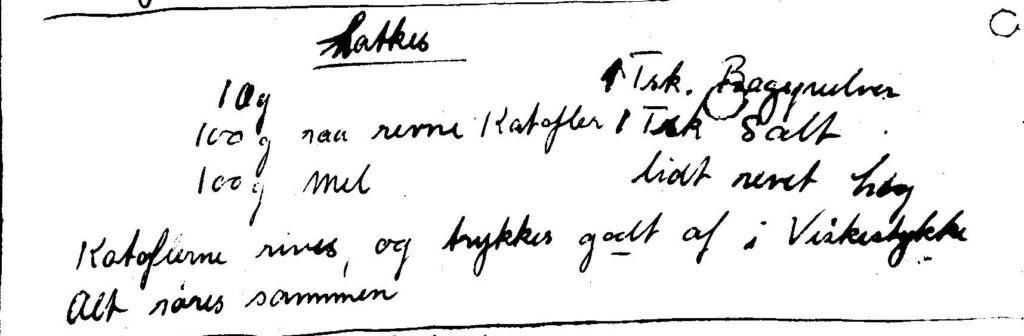 Latkes
1 Æg 1 Tsk. Bagepulver
100 g raa revne Katofler 1 Tsk Salt
100 g Mel lidt revet Løg
Katoflerne rives, og trykkes godt af i Viskestykke
Alt røres sammen